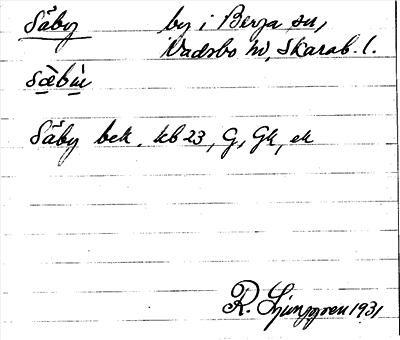 Såby by i Berga sn,
Vadsbo hd, Skarab. l.
sæ̀bù
Såby bek. kb 23, G, Gk, ek
R. Ljunggren 1931